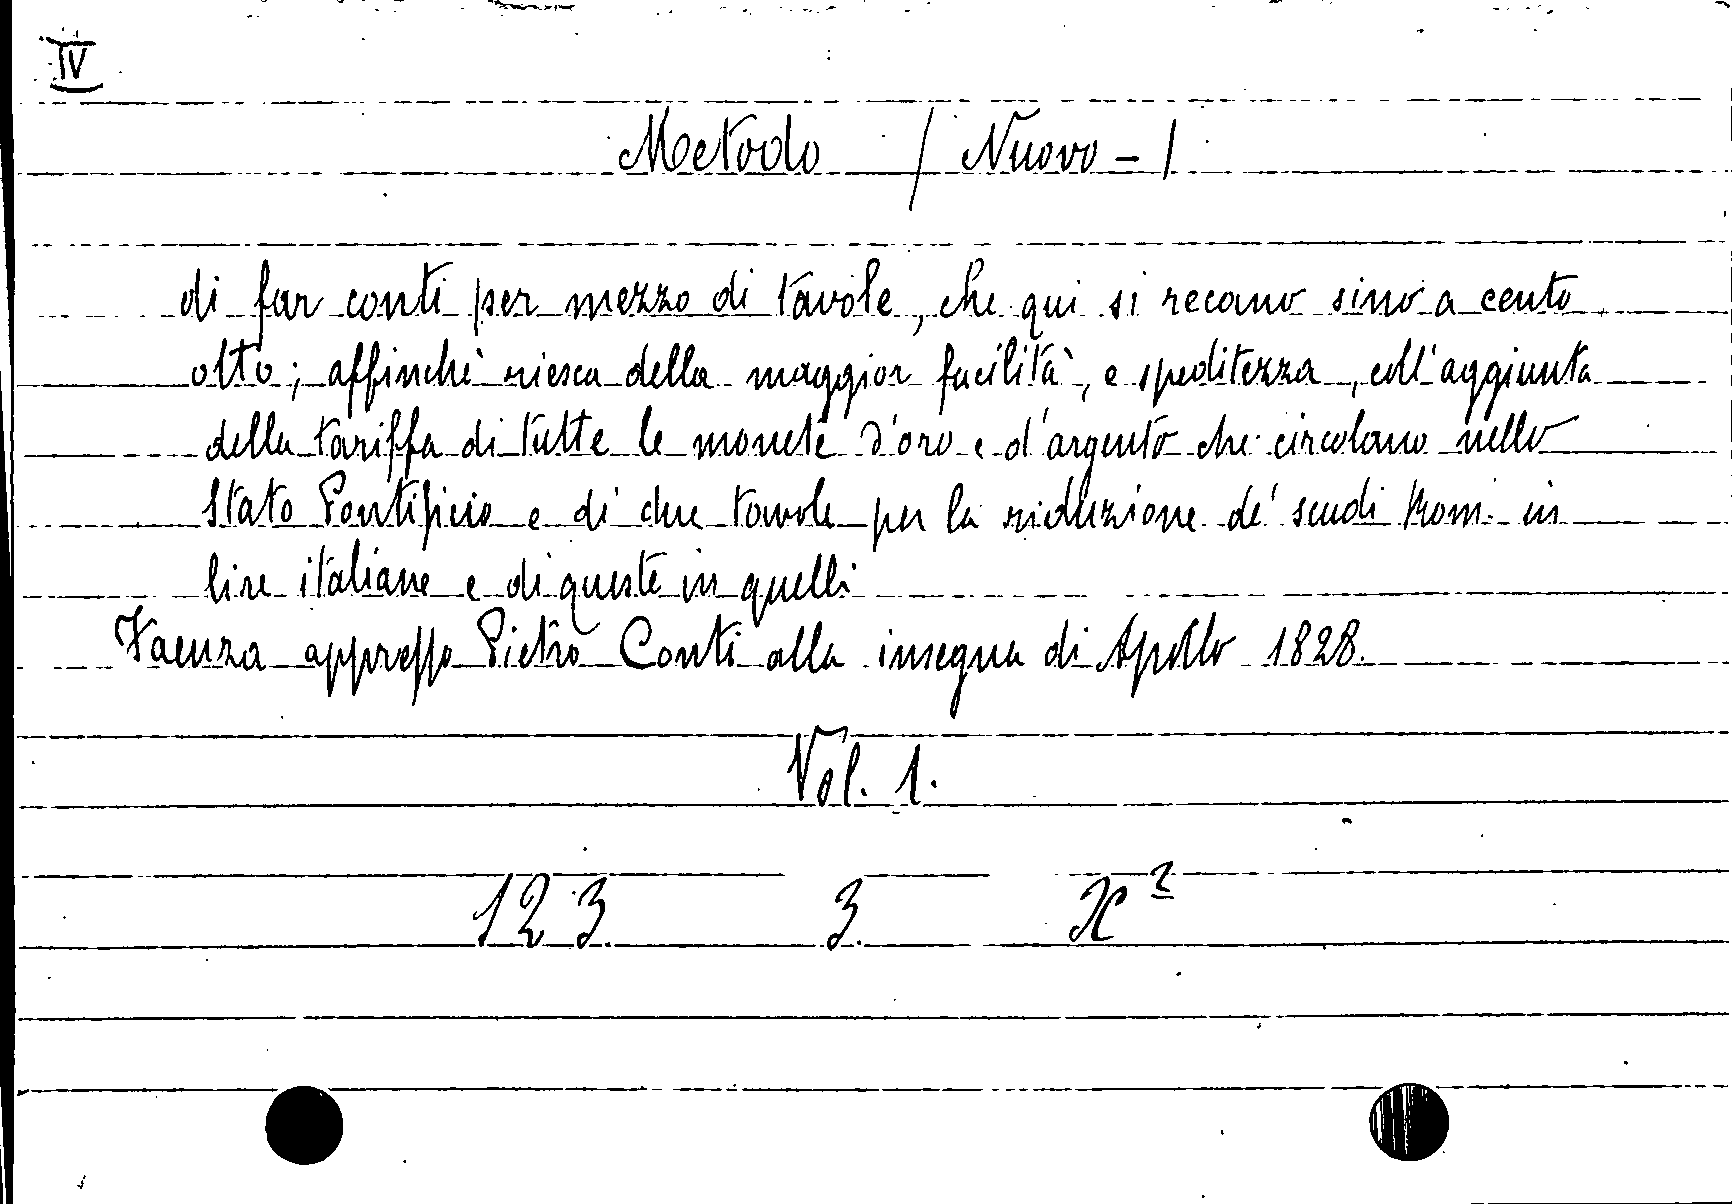 IV
Metodo / Nuovo - /
di far conti per mezzo di tavole, che qui si recano sino a cento
otto; affinchè riesca della maggior facilità, e speditezza, coll'aggiunta
della tariffa di tutte le monete d'oro e d'argento che circolano nello
Stato Pontificio e di due tavole per la riduzione de' scudi Rom. in
lire italiane e di queste in quelli
Faenza appresso Pietro Conti alla insegna di Apollo 1828.
Vol. 1.
123 3. X²